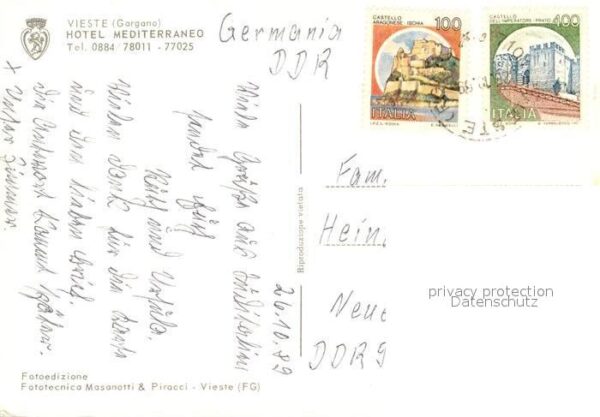 VIESTE (Gargano)
HOTEL MEDITERRANEO
Tel. 0884 78011 - 77025
Germania
DDR
CASTELLO
ARAGONESE ISCHIA
100
ITALIA
CASTELLO
DELL'IMPERATORE - PRATO
400
ITALIA
26.10.89
Viele Grüße aus Süditalien
sendet Euch
und Ursula.
Vielen Dank für die Karte
und den lieben Brief.
die Antwort kommt später.
x Unser Zimmer.
Riproduzione vietata
Fam.
Hein
Neu
DDR 9
privacy protection
Datenschutz
Fotoedizione
Fototecnica Masanotti & Piracci - Vieste (FG)